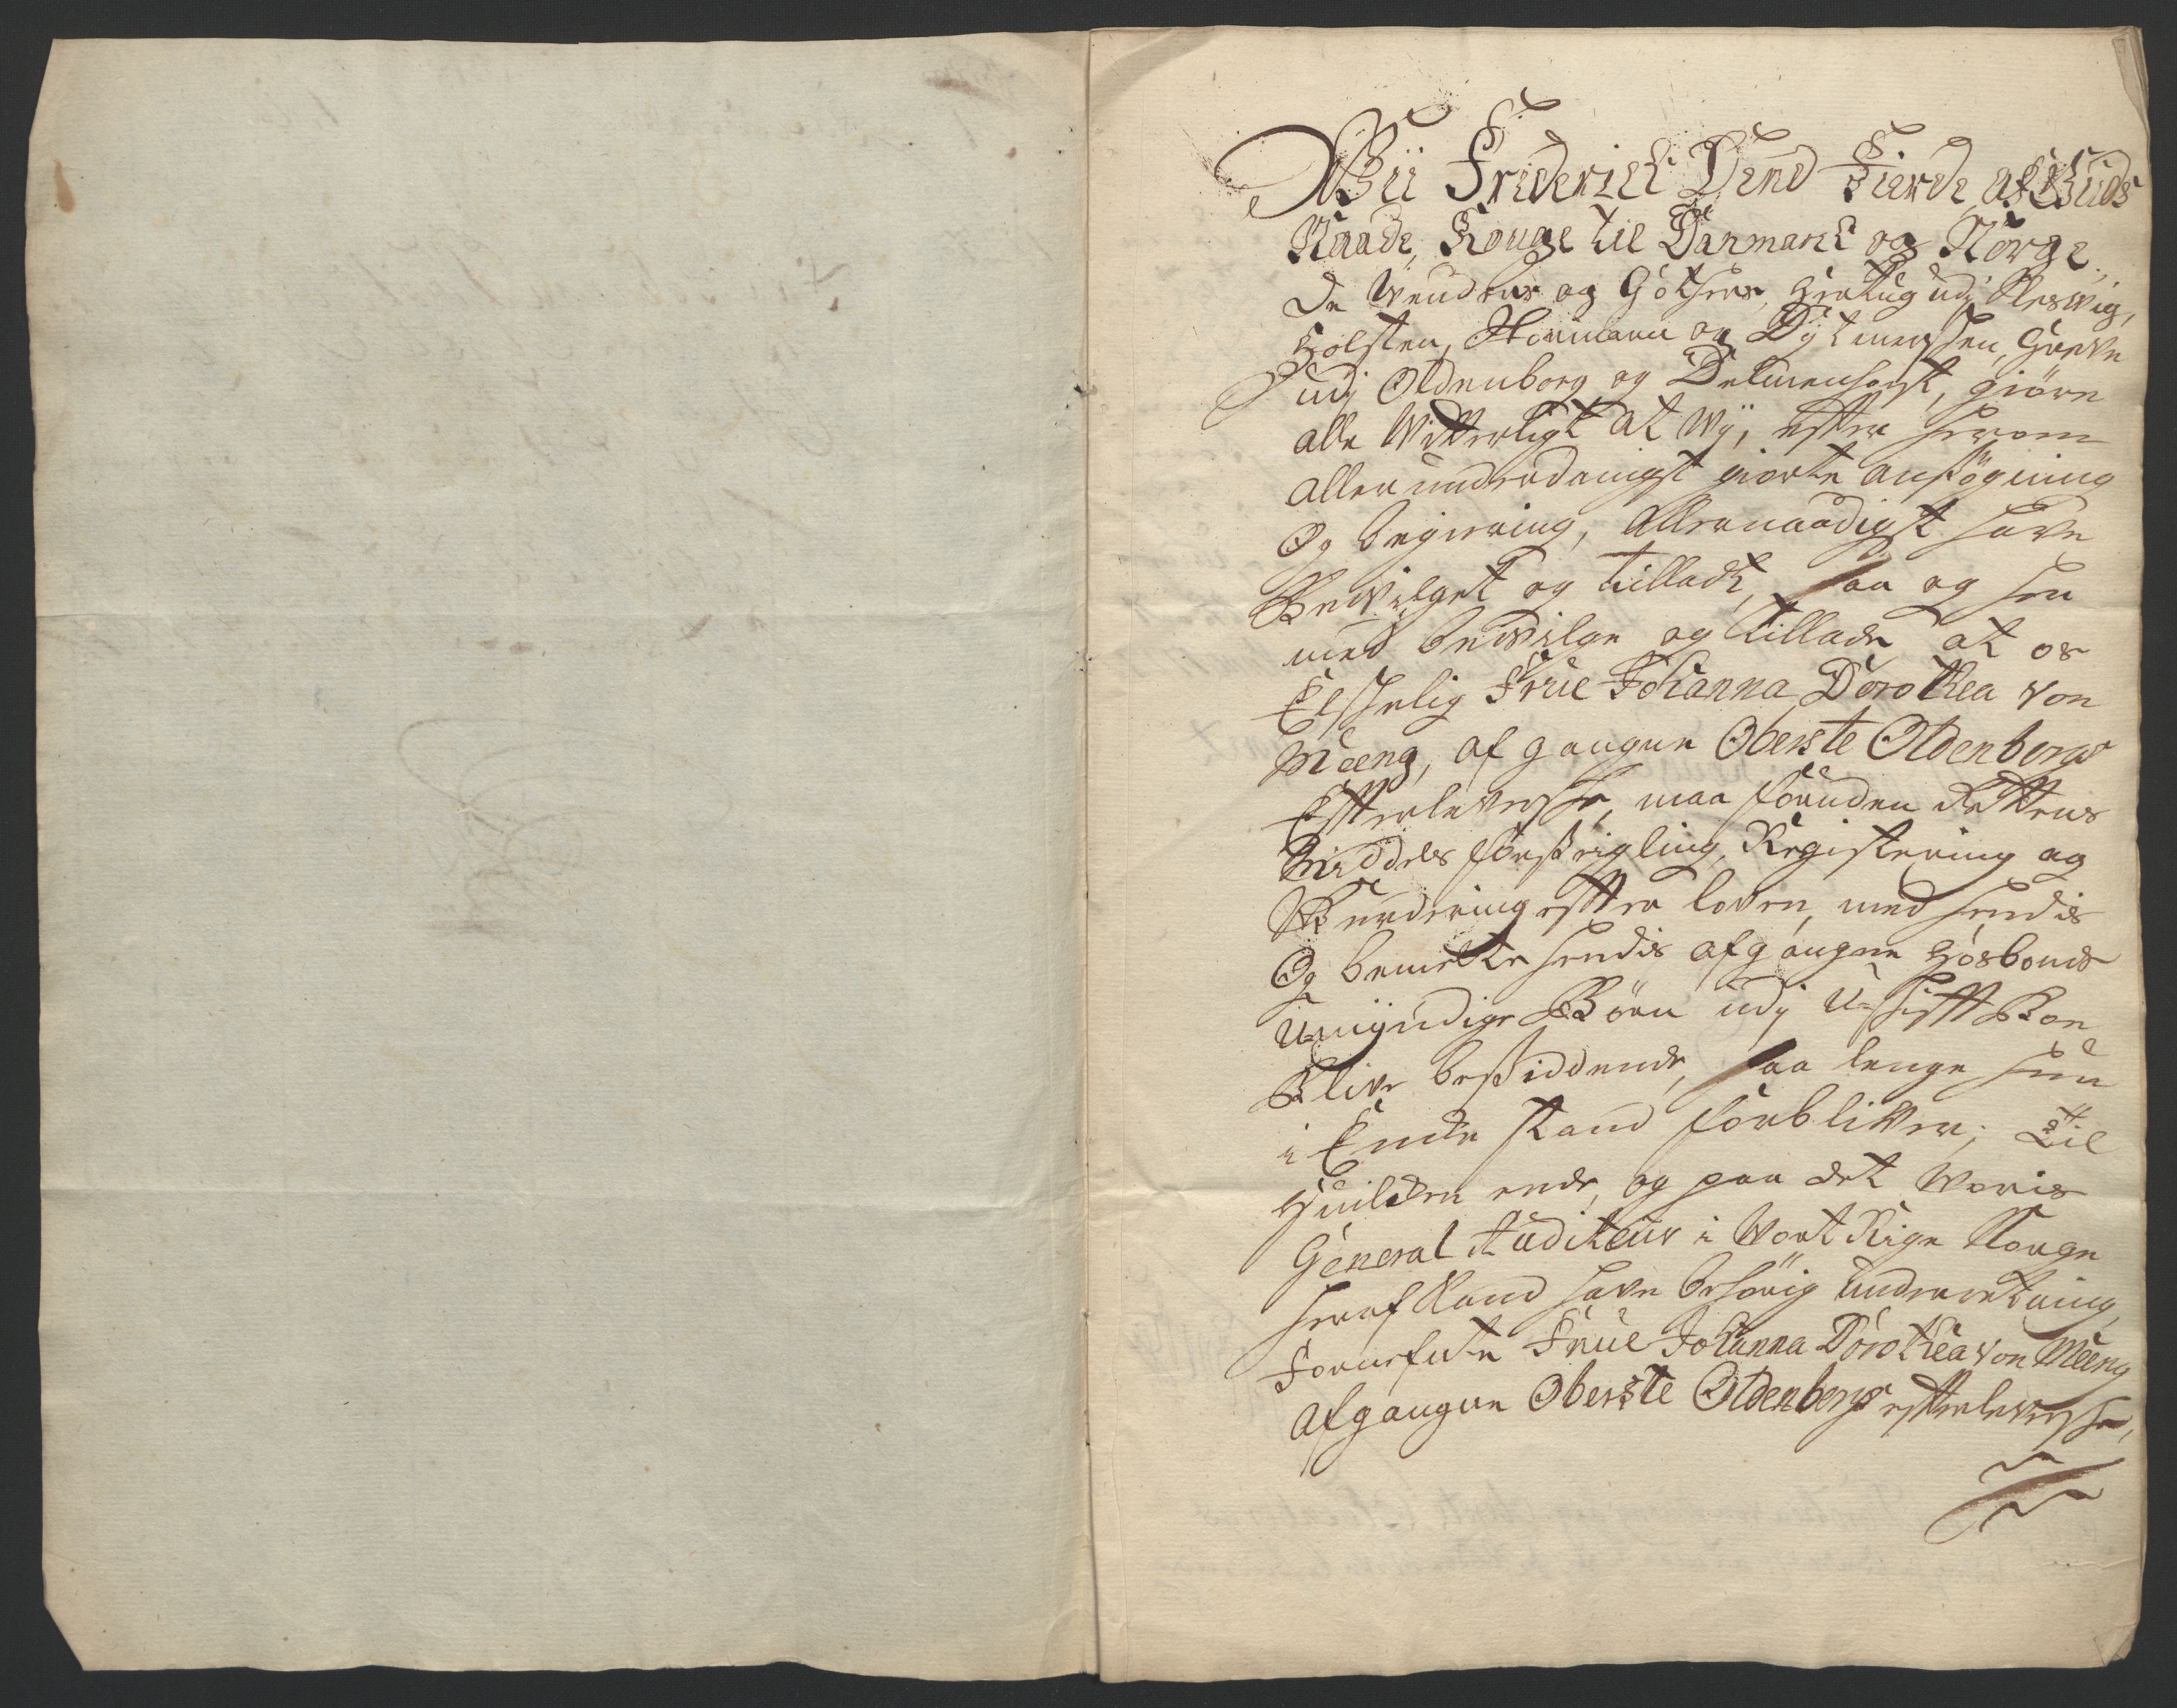 Wii Friderich Dend Fierde, af Guds
Naade, Konge til Danmark og Norge,
De Wenders og Gothers, Hertug udj Slesvig,
Holsten, Stormarn og Dytmersken, Greve
udj Oldenborg og Delmenhorst, giøre
alle Witterligt at Wij, efter herom
allerunderdanigst giorte ansøgning
Og begiering, Allernaadigst have
Bewilget og tilladt, saa og her
med bewilge og tillade, at os
Elskelig Frue Johanna Dorothea von
Meeng, afgangne Oberste Oldenborgs
Efterleverske, maa foruden Rettens
Middels forseigling, Registering og
Wurdering efter loven, med hendis
Og bemelte hendis afgangne Hosbonds
Umyndige Børn udj U-skifft Boe
Blive besiddende, saa lenge hun
i Enke stand forbliver; Til
Hvilken ende, og paa det Woris
General Auditeur i Wort Rige Norge
heraf kand have behørig underretning,
Fornefnte Frue Johanna Dorothea von Meeng
afgangne Oberste Oldenborgs efterleverske,